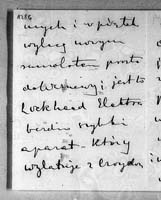 nych i w piątek
wylecę nowym
samolotem prosto
do Warszawy; jest to
Lockheed Elektra
bardzo szybki
aparat. Który
wylatuje z Croydon